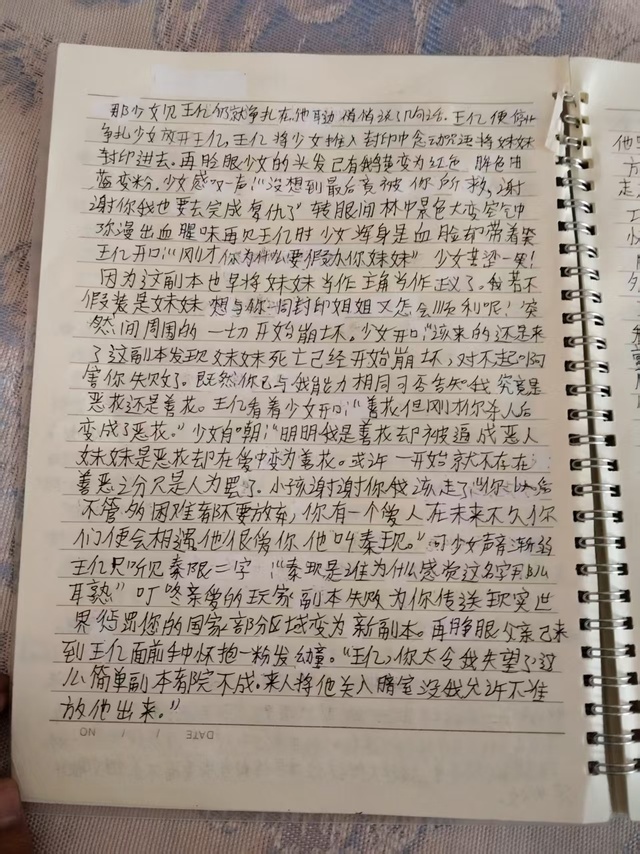 那少女见王亿仍就争扎在他耳边悄悄说了几句话。王亿便停止
争扎少女放开王亿,王亿将少女推入封印中念动咒语将妹妹
封印进去。再脸服少女的头发已有变为红色 眸色由
蓝变粉。少女感叹一声:“没想到最后竟被你所救,谢
谢你我也要去完成复仇了”转服间林中景色大变空气中
弥漫出血腥味再见王亿时少女浑身是血脸却带着笑
王亿开口:“刚才你为什么要假扮你妹妹”少女苦涩一笑!
因为这副本也早将妹妹当作主角当作正义了。我若不
假装是妹妹想与你一同封印姐姐又怎会顺利呢!突
然间周围的一切开始崩坏。少女开口:“该来的还是来
了这副本发现妹妹死亡已经开始崩坏,对不起啊
害你失败了。既然你已与我能力相同可否告知我究竟是
恶花还是善花。王亿看着少女开口:“善花但刚才你杀人后
变成了恶花。”少女自嘲:“明明我是善花却被逼成恶人
妹妹是恶花却在爱中变为善花。或许一开始就不存在
善恶之分只是人为罢了。小孩谢谢你我该走了“你以后
不管多困难都不要放弃,你有一个爱人在未来不久你
们便会相遇他很爱你他叫秦现。”可少女声音渐弱
王亿只听见秦限二字:“秦现是谁为什么感觉这名字那么
耳熟”叮咚亲爱的玩家副本失败为你传送现实世
界惩罚您的国家部分区域变为新副本。再睁服父亲已来
到王亿面前手中怀抱一粉发幼童。“王亿,你太令我失望了这
么简单副本都完不成。来人将他关入暗室没我允许不准
放他出来。”
DATE / / NO